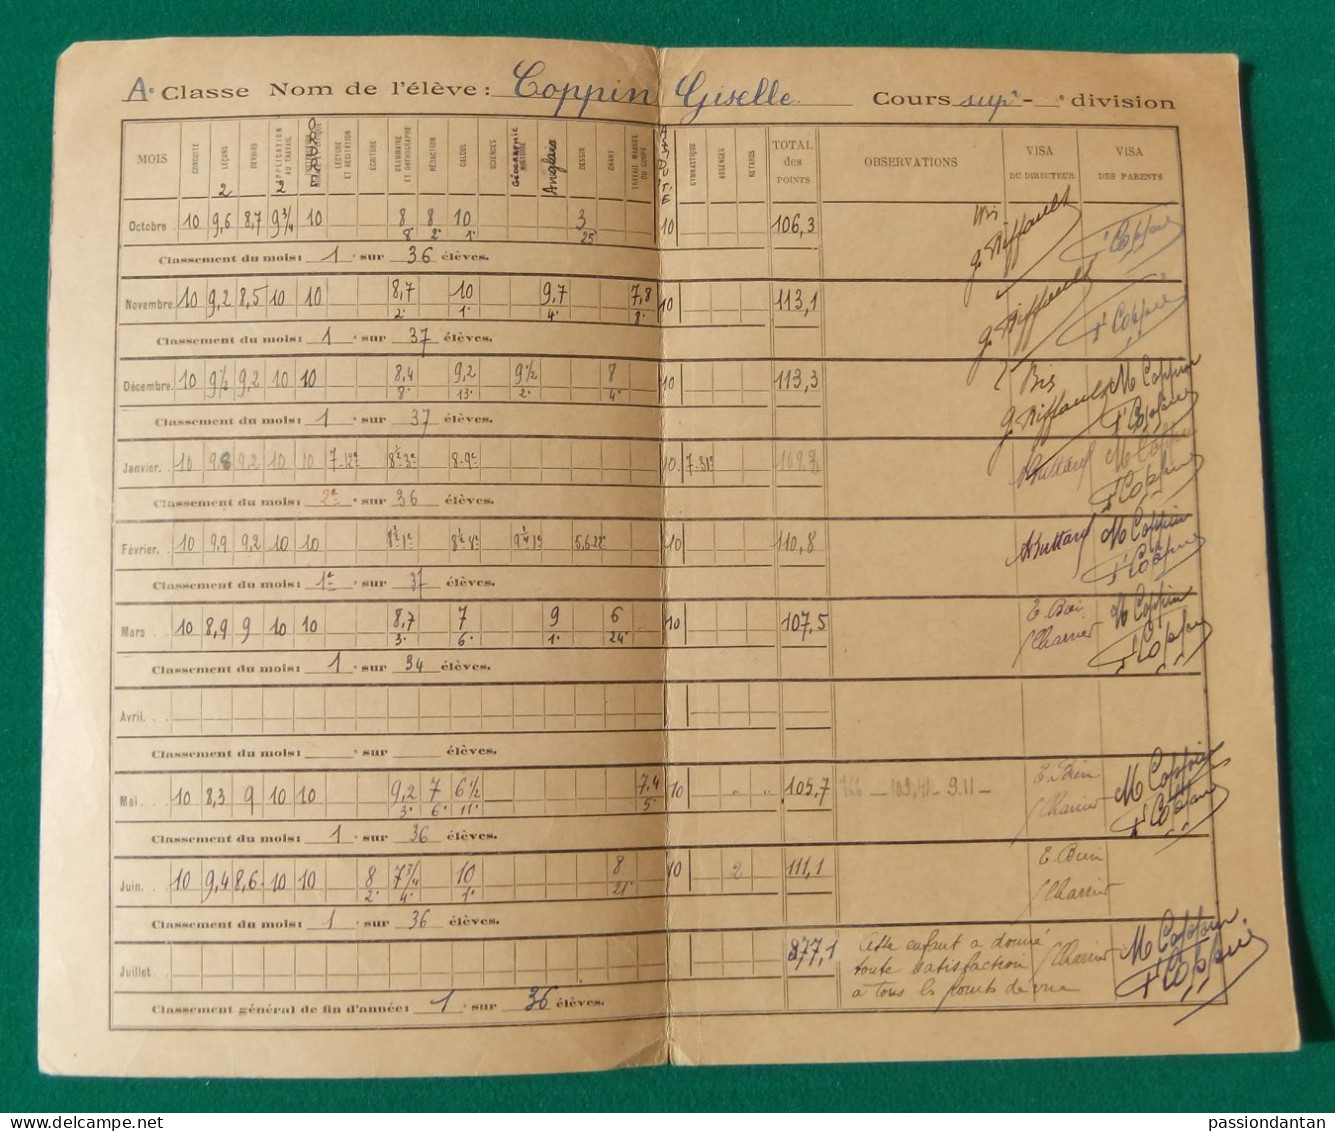 Ae Classe Nom de l'élève : Coppin Giselle. Cours supr - e division
MOIS CONDUITE LEÇONS DEVOIRS APPLICATION AU TRAVAIL ORDRE LECTURE ET RÉCITATION ÉCRITURE GRAMMAIRE ET ORTHOGRAPHE RÉDACTION CALCUL SCIENCES Géographie HISTOIRE Anglais DESSIN CHANT TRAVAIL MANUEL OU COUPE GYMNASTIQUE ABSENCES RETARDS TOTAL des POINTS OBSERVATIONS VISA DU DIRECTEUR VISA DES PARENTS
2 2
Octobre 10 9,6 8,7 9 3/4 10 8 8 10 3 10 106,3 Bis g. Riffault Coppin
8e 2e 1e 25e
Classement du mois : 1 e sur 36 élèves.
Novembre. 10 9,2 8,5 10 10 8,7 10 9,7 7,8 10 113,1 g. Riffault Coppin
2e 1e 4e 8e
Classement du mois : 1 e sur 37 élèves.
Décembre. 10 9 1/2 9,2 10 10 8,4 9,2 9 1/2 8 10 113,3 Bis g. Riffault M Coppin Coppin
8e 13e 2e 4e
Classement du mois : 1 e sur 37 élèves.
Janvier. . 10 9,8 9,2 10 10 7-12e 8 1/2-3e 8-9e 10 7-31e M Coppin Coppin
Classement du mois : 2e e sur 36 élèves.
Février. . 10 9,9 9,2 10 10 8 1/2 1e 10 110,8 M Coppin Coppin
Classement du mois : 1e e sur 37 élèves.
Mars . . 10 8,9 9 10 10 8,7 7 9 6 10 107,5 Charrier M Coppin Coppin
3e 6e 1e 24e
Classement du mois : 1 e sur 34 élèves.
Avril. . .
Classement du mois : e sur élèves.
Mai. . . 10 8,3 9 10 10 9,2 7 6 1/2 7,4 10 105,7 Charrier M Coppin Coppin
3e 6e 11e 5e
Classement du mois : 1 e sur 36 élèves.
Juin. . . 10 9,4 8,6 10 10 8 7 3/4 10 8 10 2 111,1 Charrier
2e 4e 1e 21e
Classement du mois : 1 e sur 36 élèves.
Juillet. . 877,1 Cette enfant a donné toute satisfaction à tous les points de vue Charrier M Coppin Coppin
Classement général de fin d'année : 1 e sur 36 élèves.
passiondantan